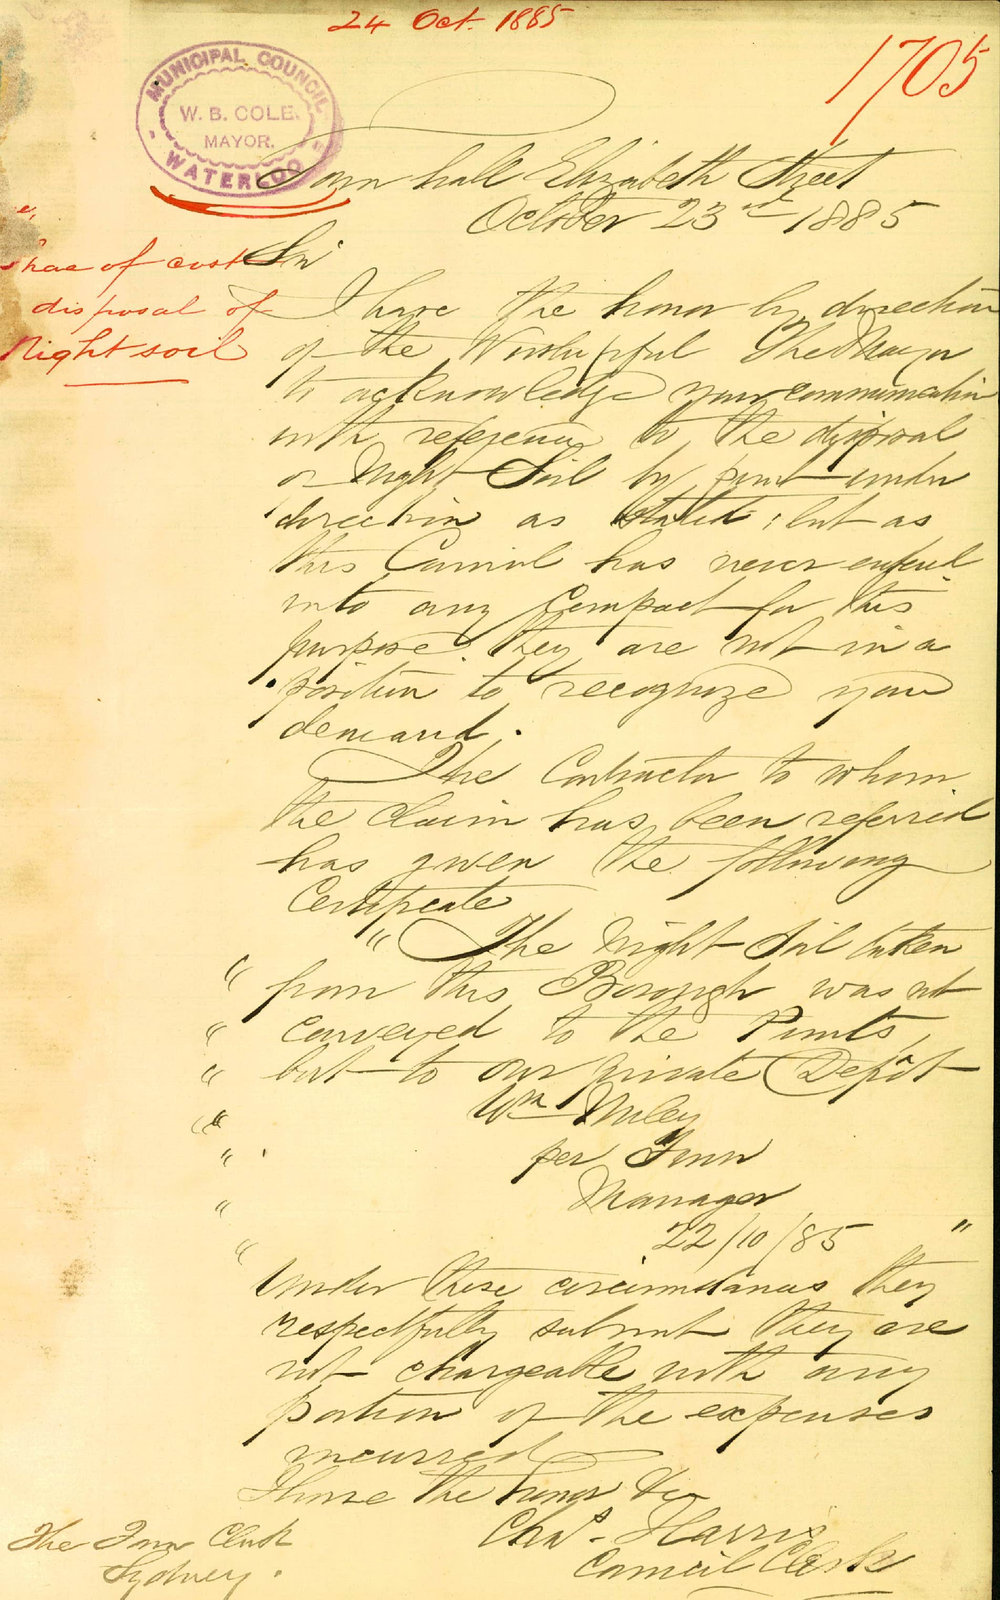 24 Oct. 1885
1705
MUNICIPAL COUNCIL
W. B. COLE.
MAYOR.
WATERLOO
Town hall Elizabeth Street
October 23rd 1885
of cost
disposal of
Night soil
Sir
I have the honor by direction
of the Worshipful The Mayor
to acknowledge your communication
with reference to the disposal
of Night Soil by punt under
direction as stated; but as
this Council has never entered
into any Compact for this
purpose they are not in a
position to recognize your
demand.
The Contractor to whom
the claim has been referred
has given the following
Certificate
" The Night Soil taken
" from this Borough was not
" conveyed to the Punts,
" but to our private Depôt
" Wm Miley
" per
" Manager
" 22/10/85 "
Under these circumstances they
respectfully submit they are
not chargeable with any
portion of the expenses
incurred
I have the honor &c
Chas. Harris
Council Clerk
The Town Clerk
Sydney.